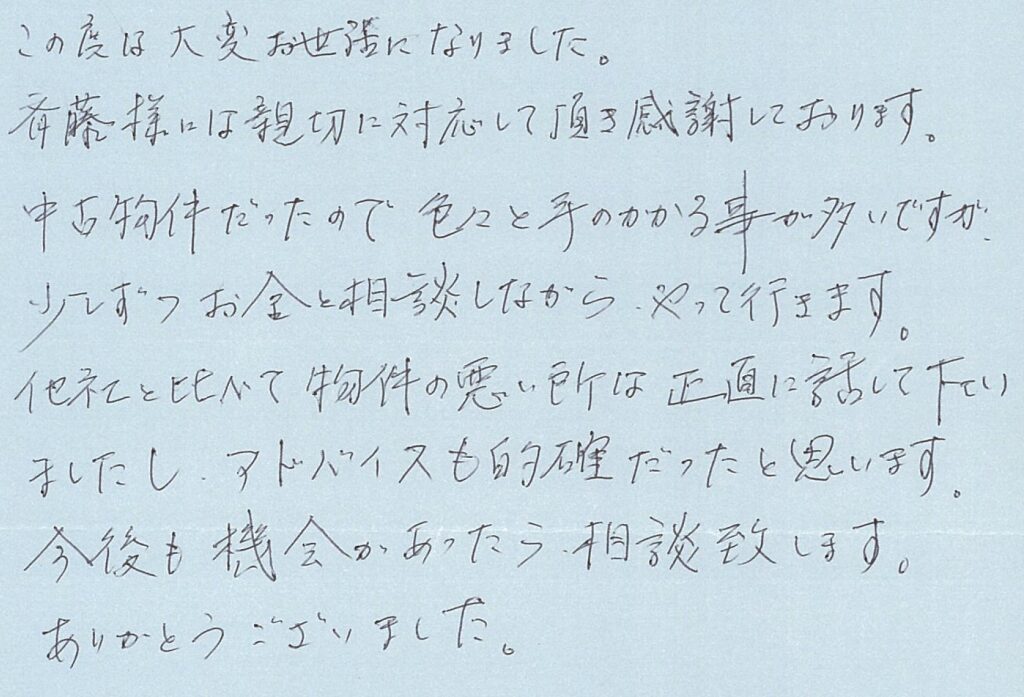 この度は大変お世話になりました。
斉藤様には親切に対応して頂き感謝しております。
中古物件だったので色々と手のかかる事が多いですが、
少しずつお金と相談しながら、やって行きます。
他社と比べて物件の悪い所は正直に話して下さい
ましたし、アドバイスも的確だったと思います。
今後も機会があったら、相談致します。
ありがとうございました。